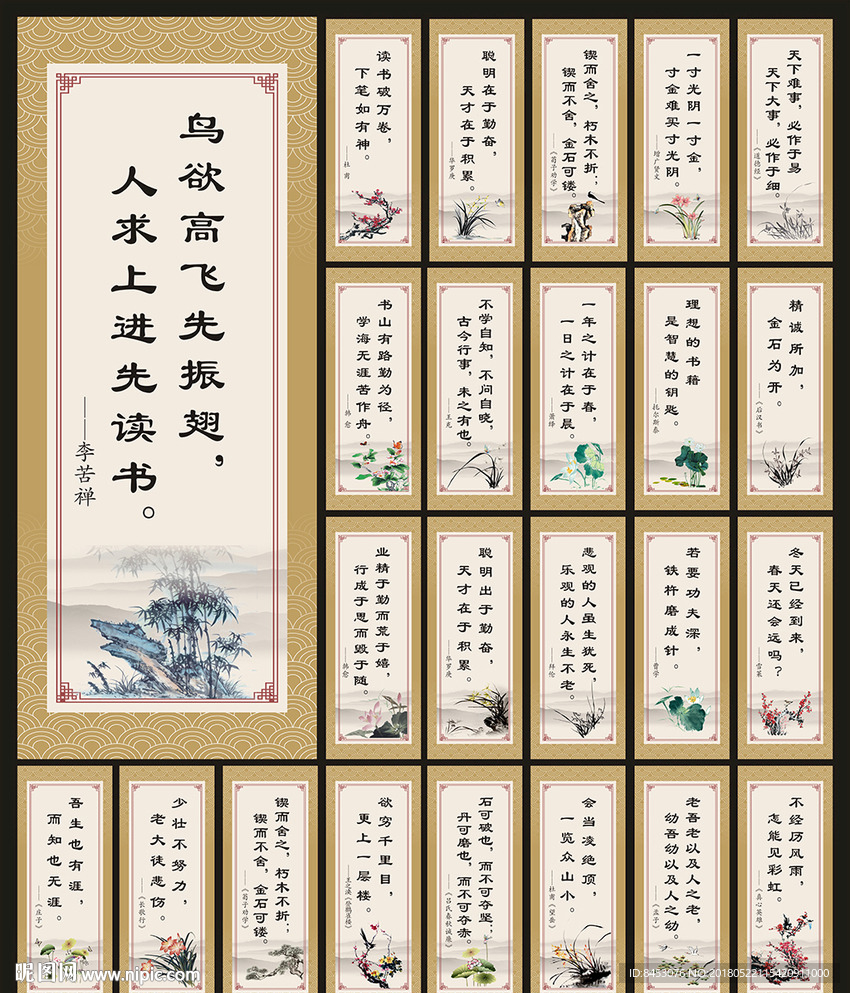 鸟欲高飞先振翅，
人求上进先读书。
——李苦禅
读书破万卷，
下笔如有神。
——杜甫
聪明在于勤奋，
天才在于积累。
——华罗庚
锲而舍之，朽木不折；
锲而不舍，金石可镂。
——《荀子劝学》
一寸光阴一寸金，
寸金难买寸光阴。
——增广贤文
天下难事，必作于易
天下大事，必作于细。
——《道德经》
书山有路勤为径，
学海无涯苦作舟。
——韩愈
不学自知，不问自晓，
古今行事，未之有也。
——王充
一年之计在于春，
一日之计在于晨。
——萧绎
理想的书籍
是智慧的钥匙。
——托尔斯泰
精诚所加，
金石为开。
——《后汉书》
业精于勤而荒于嬉，
行成于思而毁于随。
——韩愈
聪明出于勤奋，
天才在于积累。
——华罗庚
悲观的人虽生犹死，
乐观的人永生不老。
——拜伦
若要功夫深，
铁杵磨成针。
——曹学
冬天已经到来，
春天还会远吗？
——雪莱
吾生也有涯，
而知也无涯。
——《庄子》
少壮不努力，
老大徒悲伤。
——《长歌行》
锲而舍之，朽木不折；
锲而不舍，金石可镂。
——《荀子劝学》
欲穷千里目，
更上一层楼。
——王之涣《登鹳雀楼》
石可破也，而不可夺坚；
丹可磨也，而不可夺赤。
——《吕氏春秋诚廉》
会当凌绝顶，
一览众山小。
——杜甫《望岳》
老吾老以及人之老，
幼吾幼以及人之幼。
——《孟子》
不经历风雨，
怎能见彩虹。
——《真心英雄》
昵图网 www.nipic.com
ID:8453076 NO:20180522115420911000